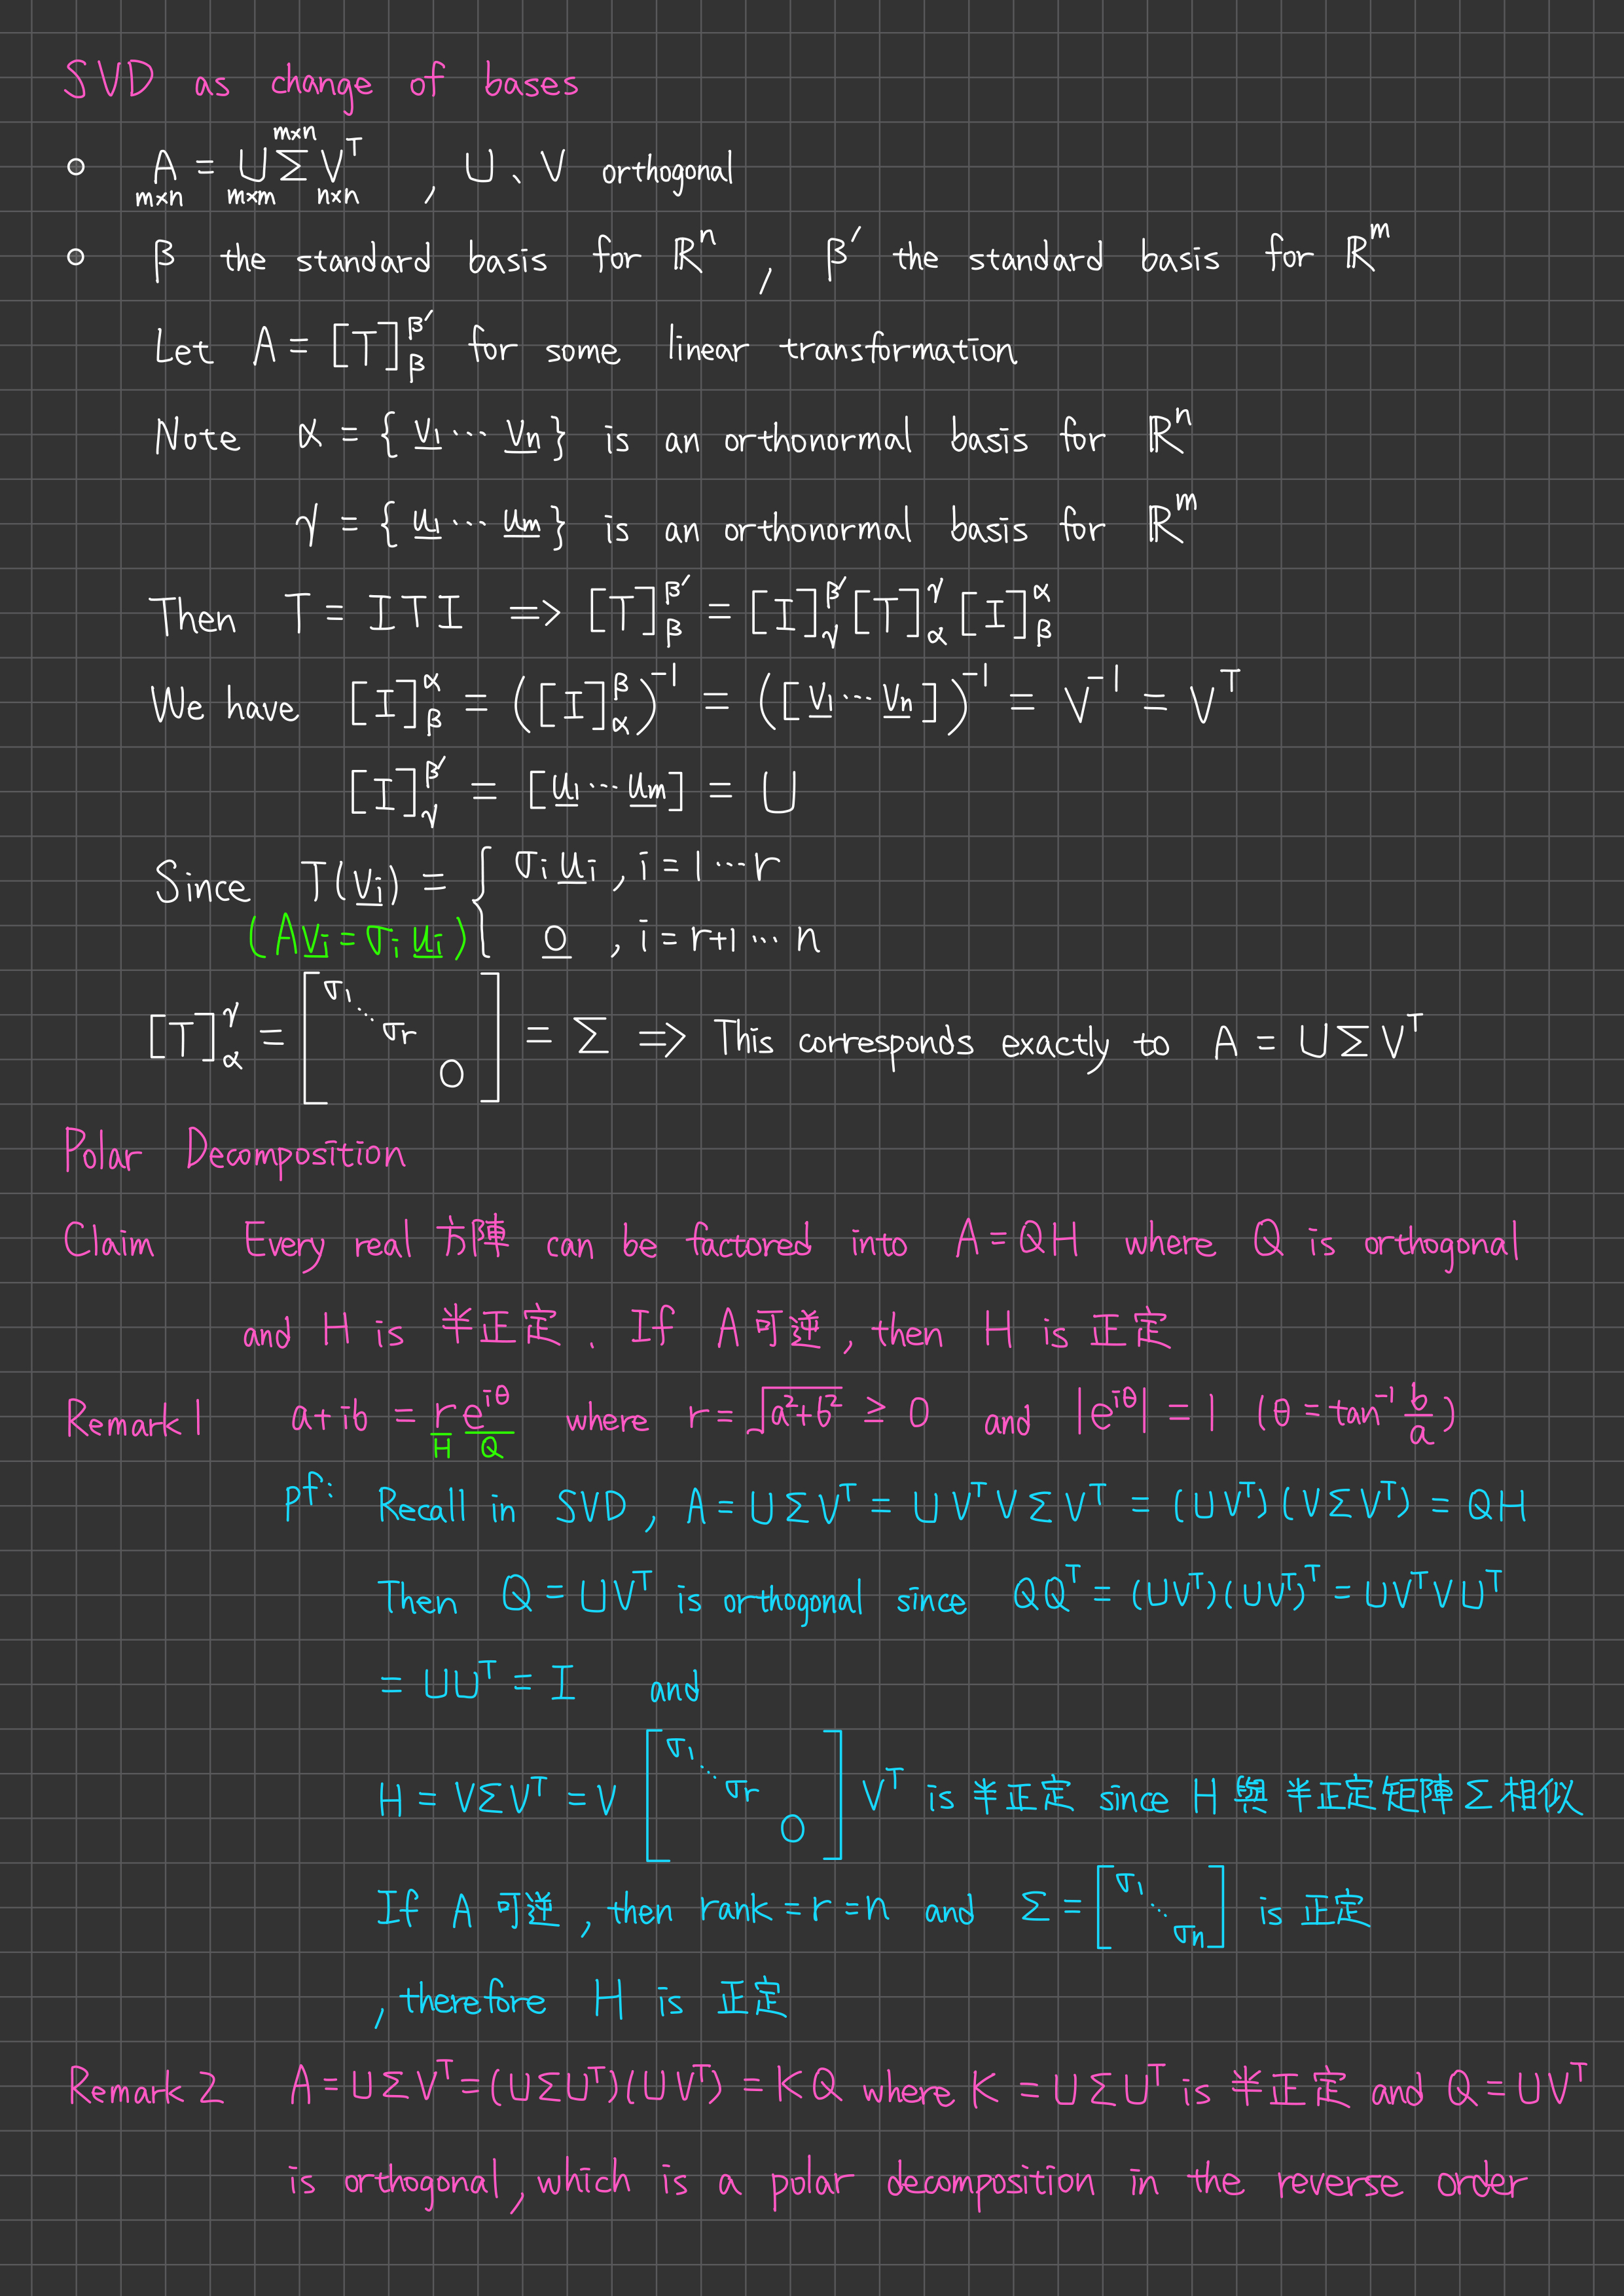 SVD as change of bases
∘ A = U Σ Vᵀ , U、V orthogonal
m×n m×m m×n n×n
∘ β the standard basis for ℝⁿ , β′ the standard basis for ℝᵐ
Let A = [T]_β^β′ for some linear transformation
Note α = { v₁ ⋯ vₙ } is an orthonormal basis for ℝⁿ
γ = { u₁ ⋯ uₘ } is an orthonormal basis for ℝᵐ
Then T = ITI ⇒ [T]_β^β′ = [I]_γ^β′ [T]_α^γ [I]_β^α
We have [I]_β^α = ([I]_α^β)⁻¹ = ([v₁ ⋯ vₙ])⁻¹ = V⁻¹ = Vᵀ
[I]_γ^β′ = [u₁ ⋯ uₘ] = U
Since T(vᵢ) = { σᵢuᵢ , i = 1 ⋯ r
(Avᵢ = σᵢuᵢ) 0 , i = r+1 ⋯ n
[T]_α^γ = [σ₁ ⋱ σᵣ 0] = Σ ⇒ This corresponds exactly to A = UΣVᵀ
Polar Decomposition
Claim Every real 方陣 can be factored into A = QH where Q is orthogonal
and H is 半正定 . If A 可逆 , then H is 正定
Remark 1 a+ib = r e^{iθ} where r = √(a²+b²) ≥ 0 and |e^{iθ}| = 1 (θ = tan⁻¹ b/a)
H Q
pf: Recall in SVD, A = UΣVᵀ = UVᵀVΣVᵀ = (UVᵀ)(VΣVᵀ) = QH
Then Q = UVᵀ is orthogonal since QQᵀ = (UVᵀ)(UVᵀ)ᵀ = UVᵀVUᵀ
= UUᵀ = I and
H = VΣVᵀ = V [σ₁ ⋱ σᵣ 0] Vᵀ is 半正定 since H 與 半正定矩陣 Σ 相似
If A 可逆 , then rank = r = n and Σ = [σ₁ ⋱ σₙ] is 正定
, therefore H is 正定
Remark 2 A = UΣVᵀ = (UΣUᵀ)(UVᵀ) = KQ where K = UΣUᵀ is 半正定 and Q = UVᵀ
is orthogonal, which is a polar decomposition in the reverse order